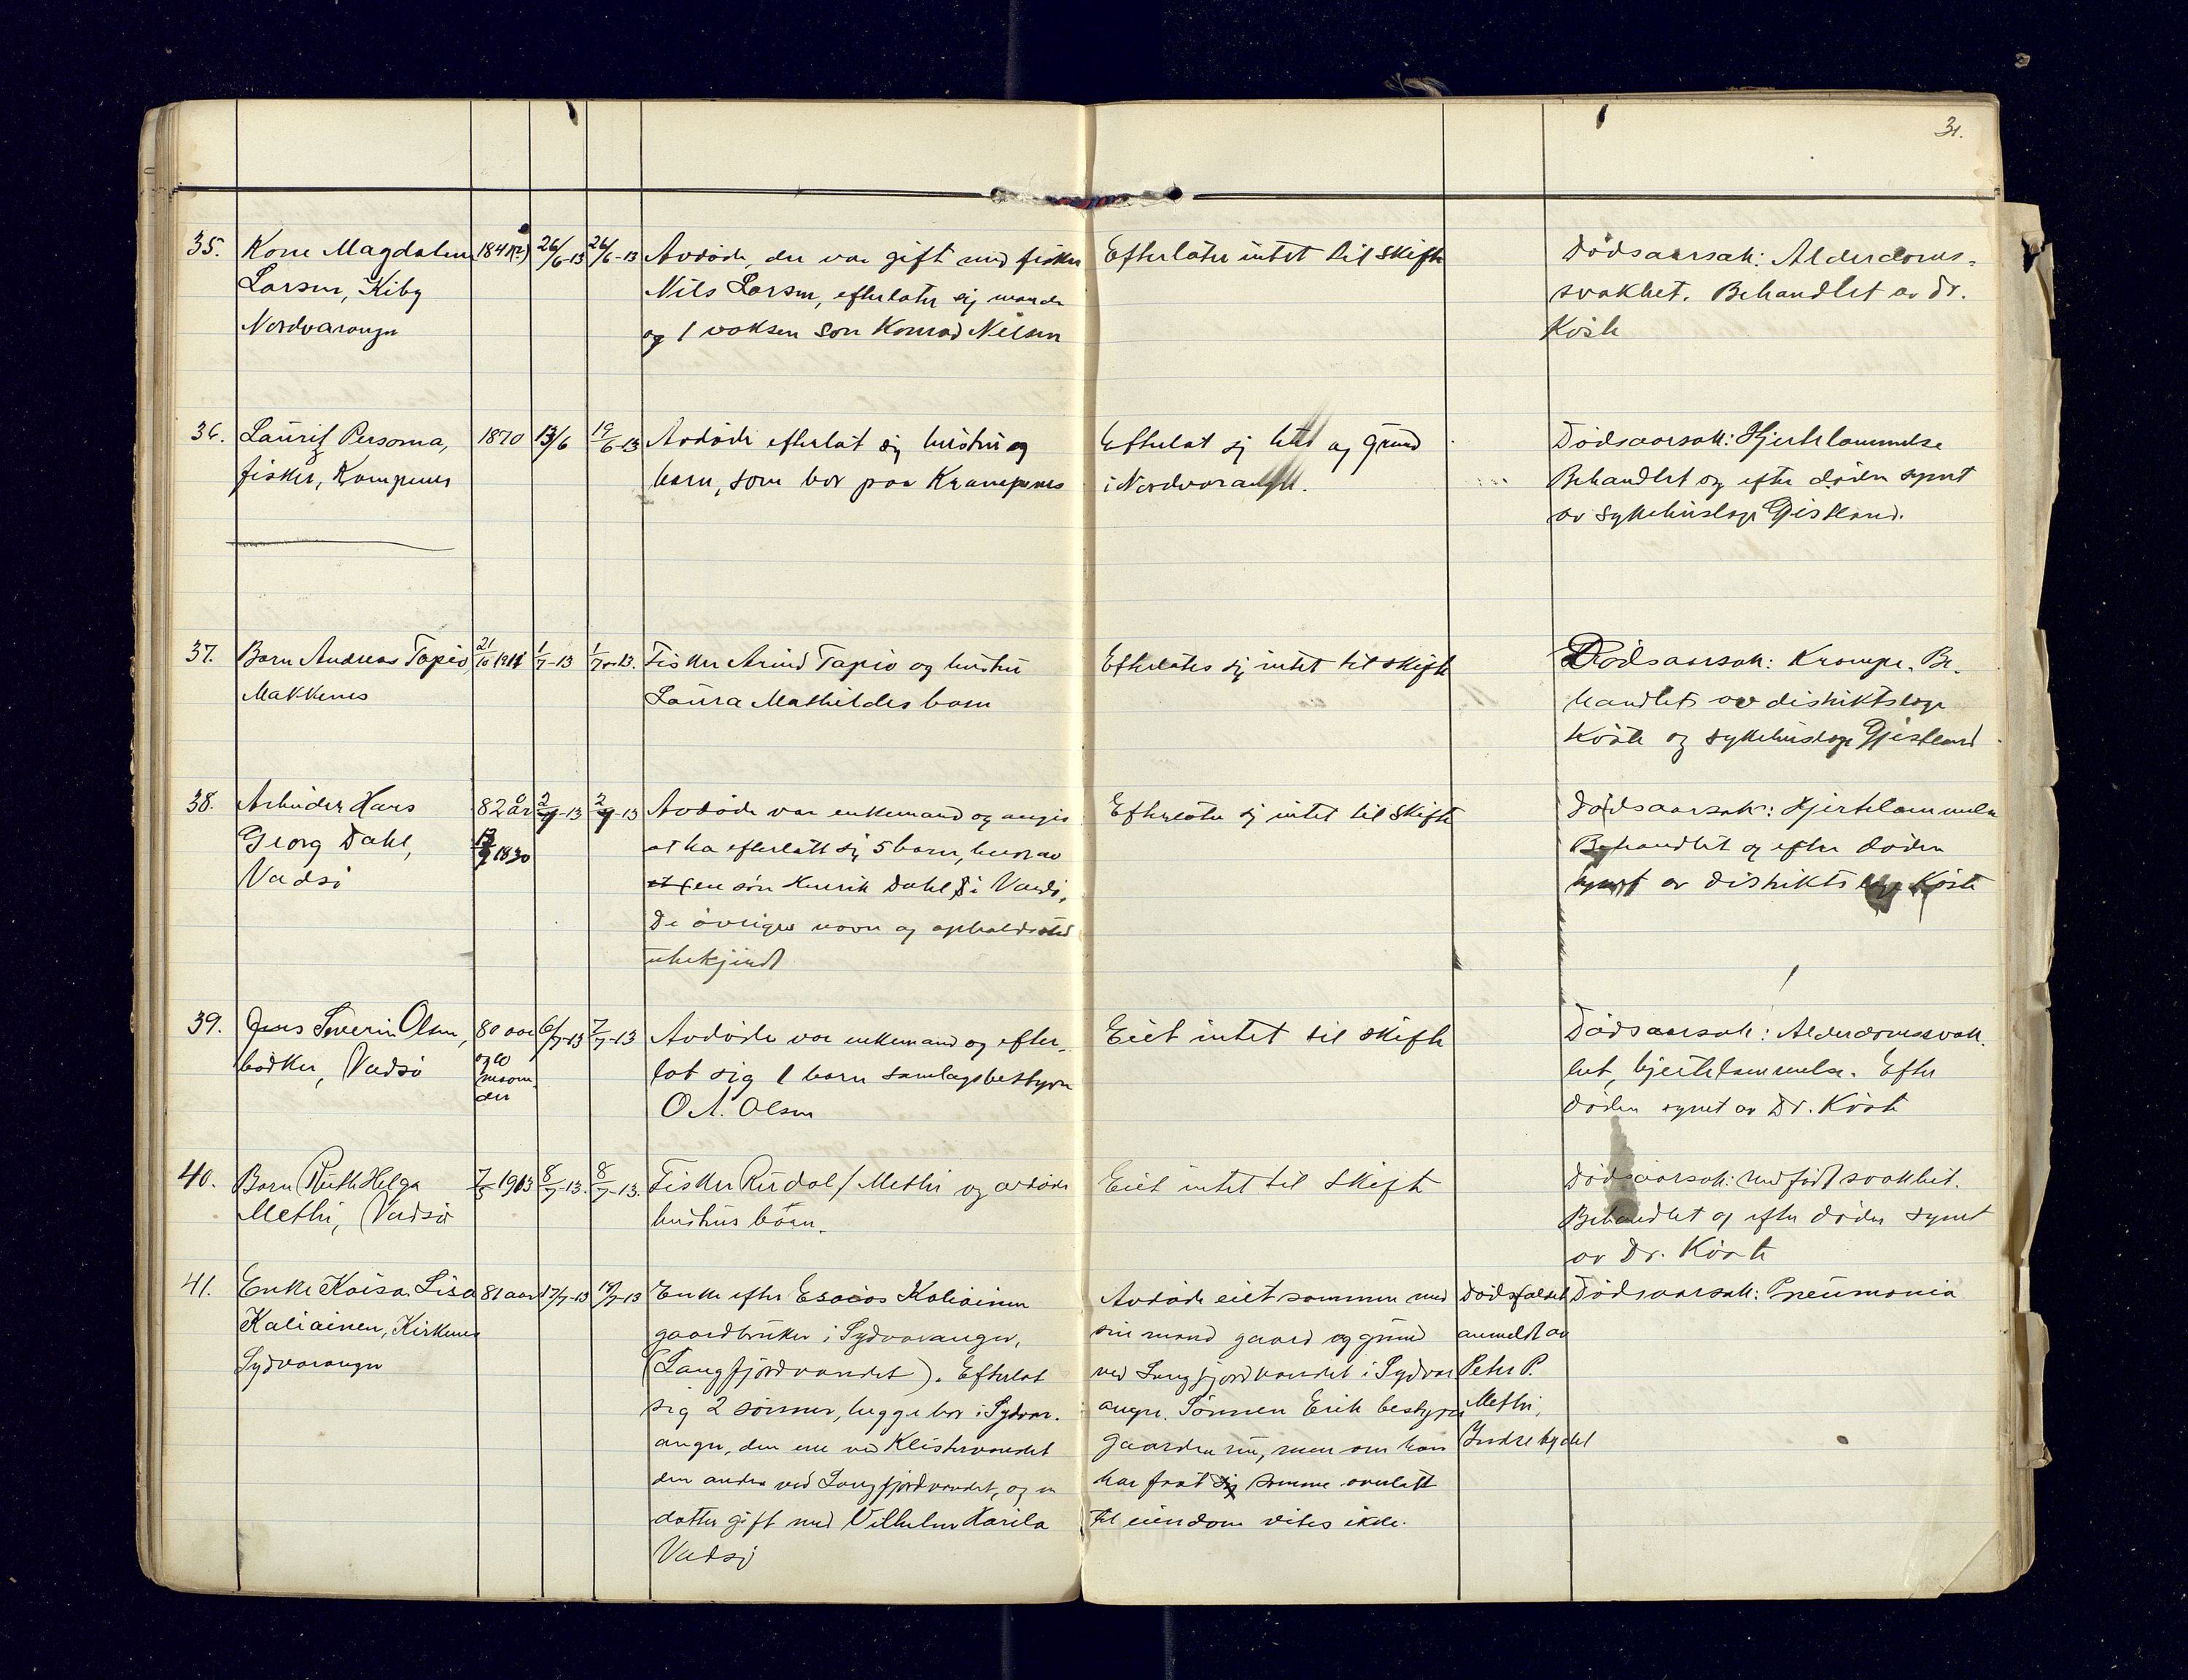 31.
35.
Kone Magdalena
Larsen, Kiby
Nordvaranger
184
26/6-13
26/6-13
Avdøde, der var gift med fisker
Nils Larsen, efterlater sig mand
og 1 voksen søn Konrad Nilsen
Efterlater intet til skifte
Dødsaarsak: Alderdoms-
svakhet. Behandlet av Dr.
36.
Lauritz Persoma,
fisker,
1870
13/6
19/6-13
Avdøde efterlat sig hustru og
barn, som bor paa Krampenes
Efterlat sig litt og grund
i Nordvaranger.
Dødsaarsak: Hjertelammelse
Behandlet og efter døden synet
av sykehuslæge Gjestland.
37.
Barn Andreas Tapio,
Makkenes
21/10 1911
1/7-13
1/7-13.
Fisker Arvid Tapio og hustru
Laura Mathildes barn
Efterlates sig intet til skifte
Dødsaarsak: Krampe. Be-
handlet av distriktslæge
og sykehuslæge Gjestland
38.
Arbeider Hans
Georg Dahl,
Vadsø
82 år
1830
2/7-13
2/7-13
Avdøde var enkemand og angis
at ha efterlatt sig 5 barn, hvorav
en søn Henrik Dahl i Vardø.
De øvriges navn og opholdssted
ubekjendt
Efterlater sig intet til skifte
Dødsaarsak: Hjertelammelse
Behandlet og efter døden
synet av distriktslæge
39.
Jens Severin Olsen,
bødker, Vadsø
80 aar
og 10
maan-
der
6/7-13
7/7-13
Avdøde var enkemand og efter-
lot sig 1 barn samlagsbestyrer
O. A. Olsen
Eiet intet til skifte
Dødsaarsak: Alderdomssvak-
het, hjertelammelse. Efter
døden synet av Dr.
40.
Barn Ruth Helga
Methi, Vadsø
7/5 1913
8/7-13.
8/7-13.
Fisker Rudolf Methi og avdøde
hustrus barn.
Eiet intet til skifte
Dødsaarsak: Medfødt svakhet.
Behandlet og efter døden synet
av Dr.
41.
Enke Kaisa Lisa
Kaliainen, Kirkenes
Sydvaranger
81 aar
17/7-13
19/7-13
Enke efter Esaias Kaliainen
gaardbruker i Sydvaranger,
(Langfjordvandet). Efterlot
sig 2 sønner, begge bor i Sydvar-
anger, den ene ved Klistervandet
den anden ved Langfjordvandet, og en
datter gift med Vilhelm Karila
Vadsø
Avdøde eiet sammen med
sin mand gaard og grund
ved Langfjordvandet i Sydvar
anger. Sønnen Erik bestyrer
gaarden nu, men om han
har faat samme overlatt
til eiendom vites ikke.
Dødsfaldet
anmeldt av
Peter P.
Methi,
Indre bydel
Dødsaarsak: Pneumonia